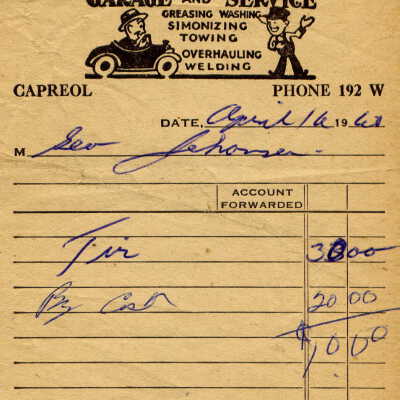 GARAGE AND SERVICE
GREASING WASHING
SIMONIZING
TOWING
OVERHAULING
WELDING
CAPREOL PHONE 192 W
DATE, April 16 1960
M Geo Johonsen.
ACCOUNT FORWARDED
Tir 30 00
By Cash 20 00
$10.00